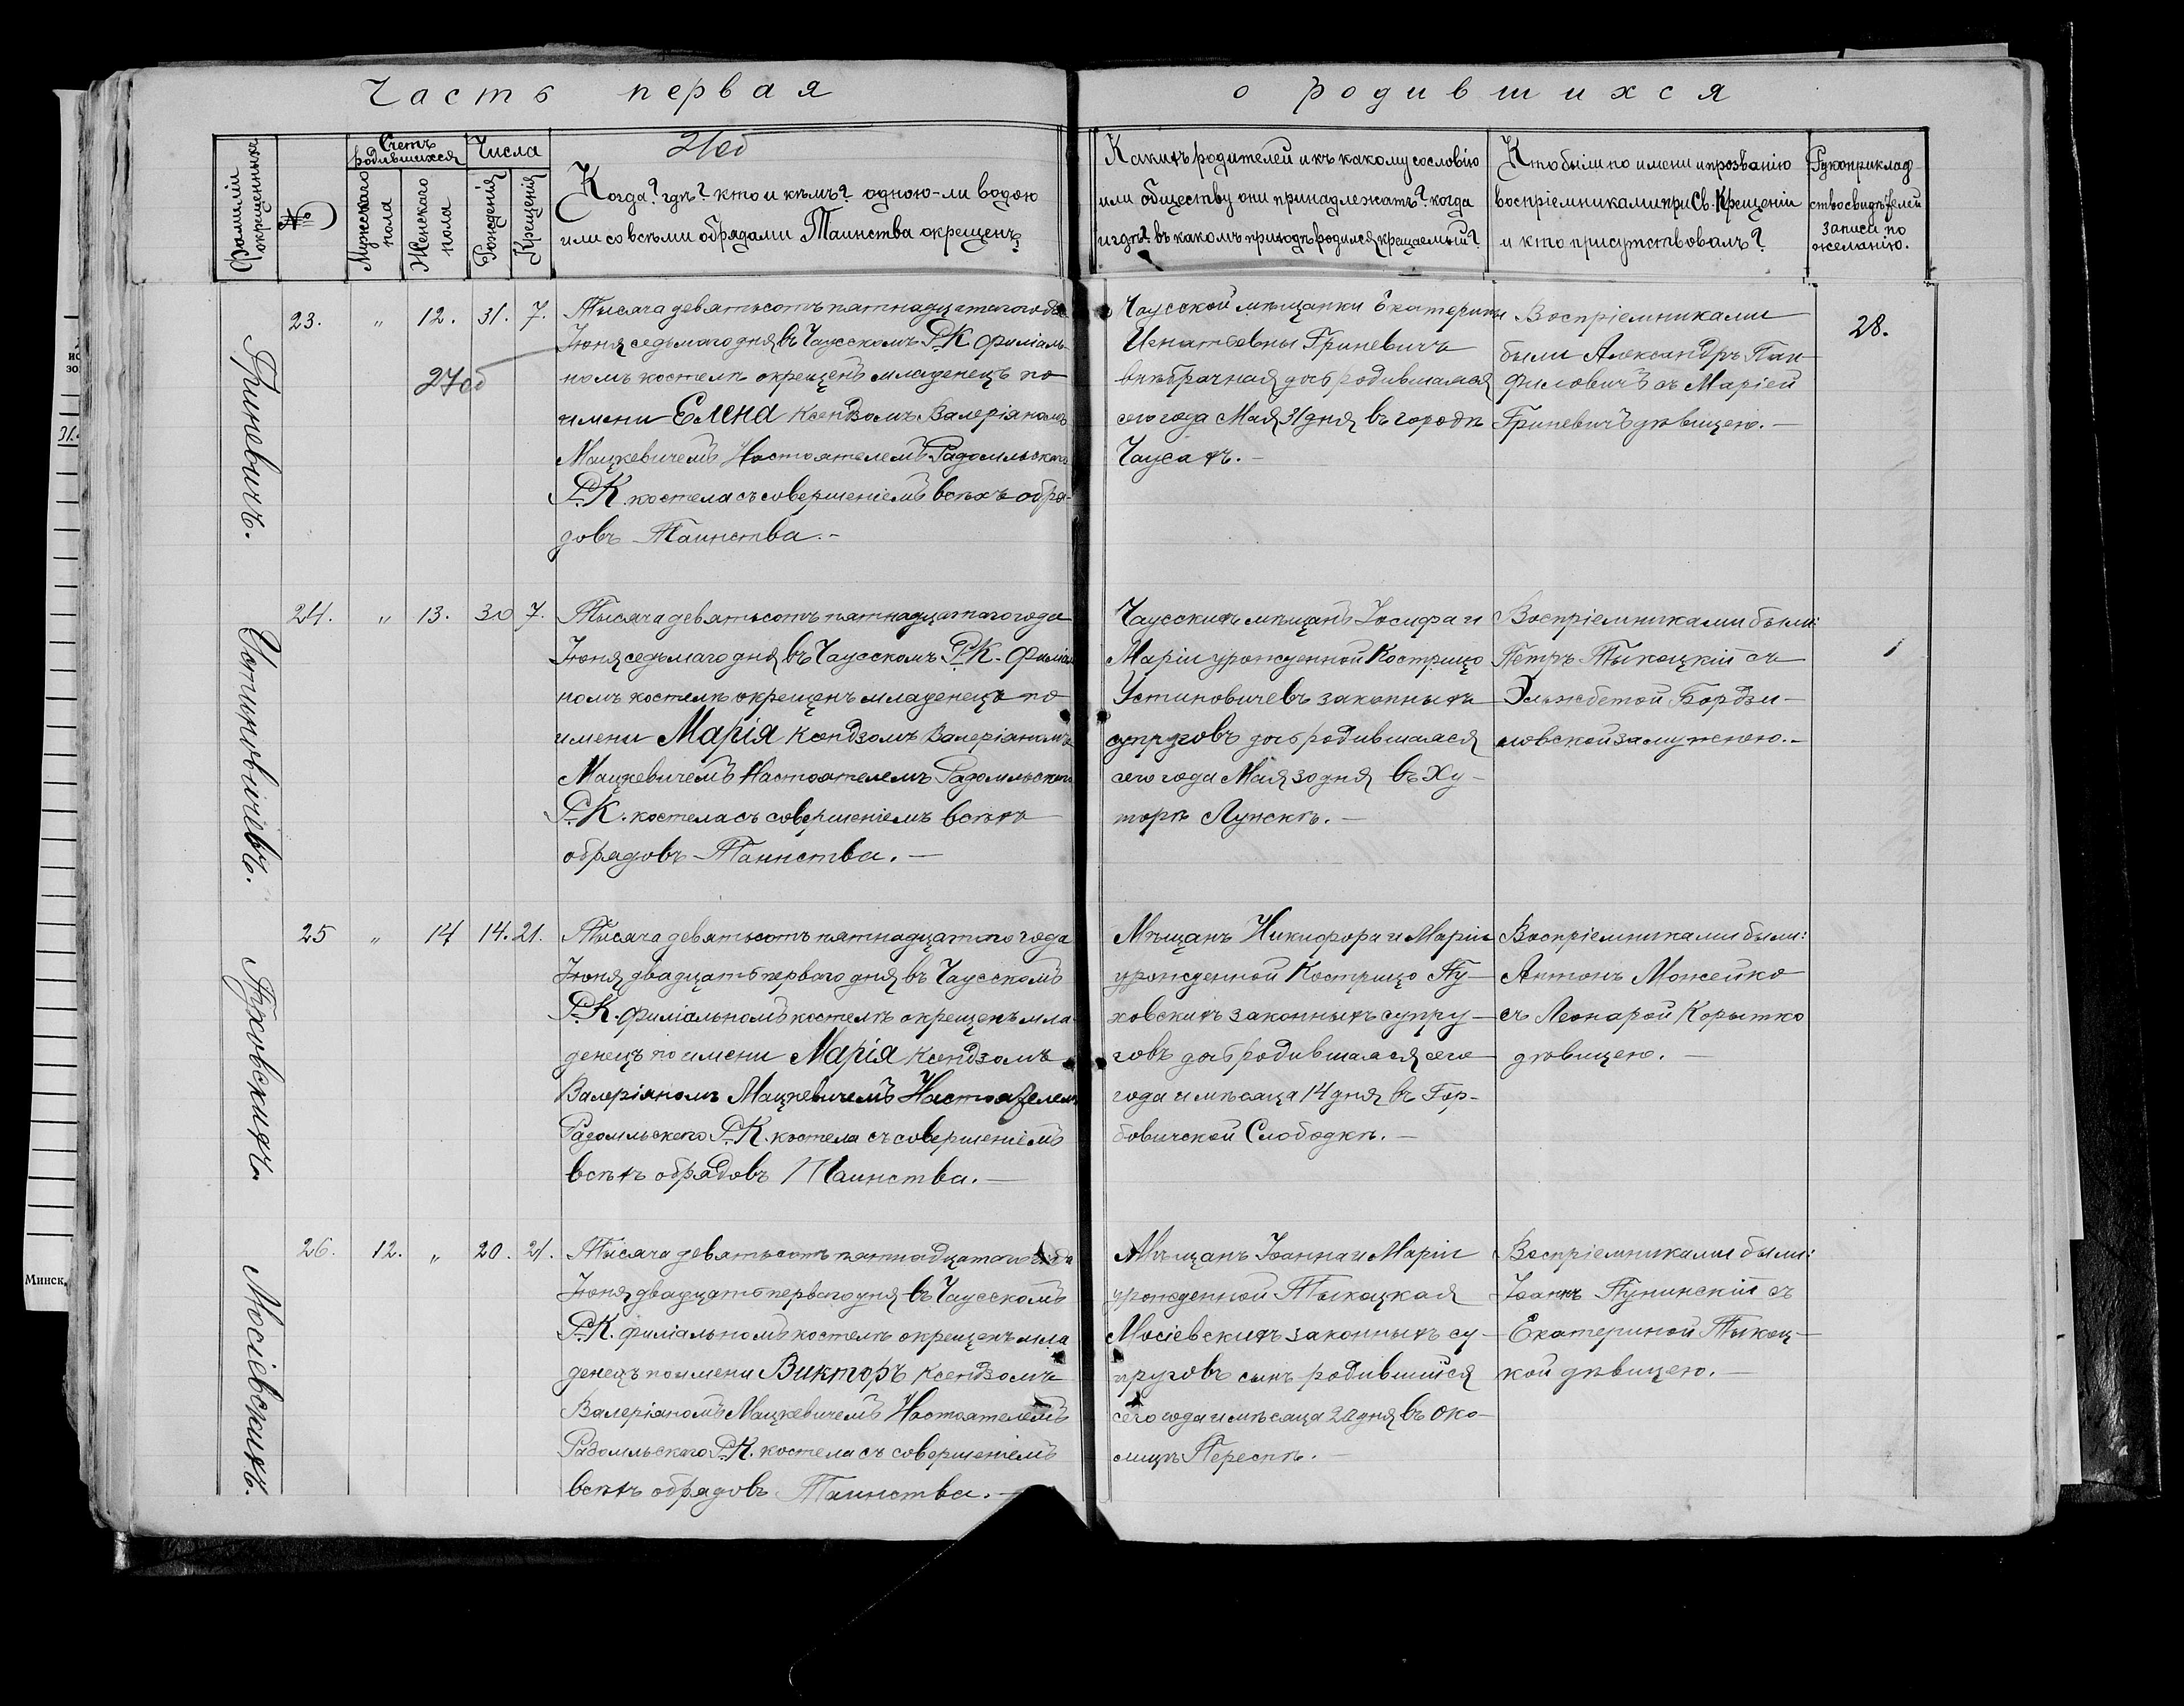 Часть первая
о родившихся
Фамиліи окрещенныхъ
№
Счетъ родившихся
Мужскаго пола
Женскаго пола
Числа
Рожденія
Крещенія
Когда? гдѣ? кто и кѣмъ? одною-ли водою
или со всѣми обрядами Таинства окрещенъ?
Какихъ родителей и къ какому сословію
или обществу они принадлежатъ? когда
и гдѣ? въ какомъ приходѣ родился крещаемый?
Кто были по имени и прозванію
воспріемниками при Св. Крещеніи
и кто присутствовалъ?
Рукоприклад-
ство свидѣтелей
записи по
желанію.
Гриневичъ.
23.
"
12.
31.
7.
27об
Тысяча девятьсотъ пятнадцатаго года
Іюня седьмаго дня въ Чаусскомъ Р.К. филіаль-
номъ костелѣ окрещенъ младенецъ по
имени Елена Ксендзомъ Валеріаномъ
Мацкевичемъ Настоятелемъ Радомльскаго
Р.К. костела съ совершеніемъ всѣхъ обря-
довъ Таинства.-
Чаусской мѣщанки Екатерины
Игнатьевны Гриневичъ
внѣбрачная дочь родившаяся
сего года Мая 31 дня въ городѣ
Чаусахъ.-
Воспріемниками
были Александръ Пан-
филовичъ съ Маріей
Гриневичъ дѣвицею.-
28.
Устиновичевъ.
24.
"
13.
30
7.
Тысяча девятьсотъ пятнадцатаго года
Іюня седьмаго дня въ Чаусскомъ Р.К. филіаль
номъ костелѣ окрещенъ младенецъ по
имени Марія Ксендзомъ Валеріаномъ
Мацкевичемъ Настоятелемъ Радомльскаго
Р.К. костела съ совершеніемъ всѣхъ
обрядовъ Таинства.-
Чаусскихъ мѣщанъ Іосифа и
Маріи урожденной Кострицо
Устиновичевъ законныхъ
супруговъ дочь родившаяся
сего года Мая 30 дня въ Ху-
торѣ Лунскѣ.-
Воспріемниками были:
Петръ Тыкоцкій съ
Эльжбетой Бордзи-
ловской замужнею.-
Пуховскихъ
25
"
14
14.
21.
Тысяча девятьсотъ пятнадцатаго года
Іюня двадцать перваго дня въ Чаусскомъ
Р.К. филіальномъ костелѣ окрещенъ мла-
денецъ по имени Марія Ксендзомъ
Валеріаномъ Мацкевичемъ Настоятелемъ
Радомльскаго Р.К. костела съ совершеніемъ
всѣхъ обрядовъ Таинства.-
Мѣщанъ Никифора и Маріи
урожденной Кострицо Пу-
ховскихъ законныхъ супру-
говъ дочь родившаяся сего
года и мѣсяца 14 дня въ Гор-
бовичской Слободкѣ.-
Воспріемниками были:
Антонъ Можейко
съ Леокарой Корытко
дѣвицею.-
Мосіевскихъ.
26.
12.
"
20.
21.
Тысяча девятьсотъ пятнадцатаго года
Іюня двадцать перваго дня въ Чаусскомъ
Р.К. филіальномъ костелѣ окрещенъ мла
денецъ по имени Викторъ Ксендзомъ
Валеріаномъ Мацкевичемъ Настоятелемъ
Радомльскаго Р.К. костела съ совершеніемъ
всѣхъ обрядовъ Таинства.-
Мѣщанъ Іоанна и Маріи
урожденной Тыкоцкая
Мосіевскихъ законныхъ су-
пруговъ сынъ родившійся
сего года и мѣсяца 20 дня въ Око-
лицѣ Пересѣ.-
Воспріемниками были:
Іоаннъ Пунинскій съ
Екатериной Тыкоц-
кой дѣвицею.-
31.
Минск,